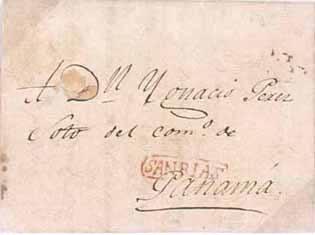 A Dⁿ Ygnacio Perez
Soto del comº. de
SANBLAS
Panamá.